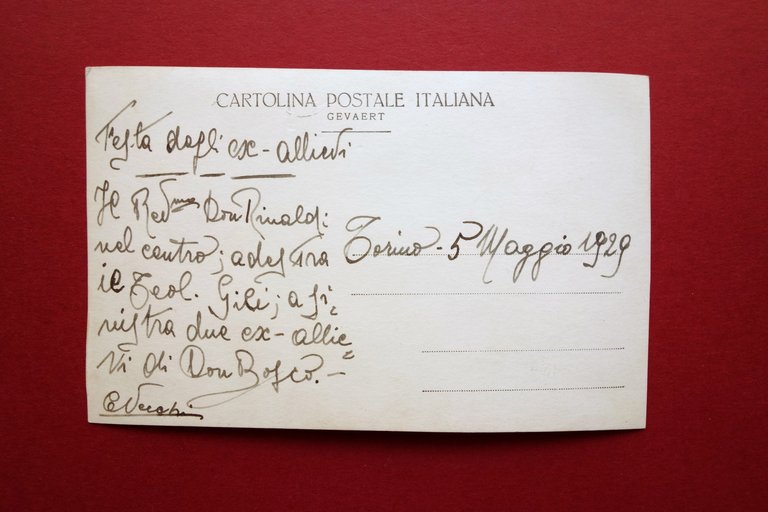 CARTOLINA POSTALE ITALIANA
GEVAERT
Festa degli ex-allievi
Il Red.mo Don Rinaldi
nel centro; a destra
il Teol. Gili; a si-
nistra due ex-allie=
vi di Don Bosco.-
Torino - 5 Maggio 1929